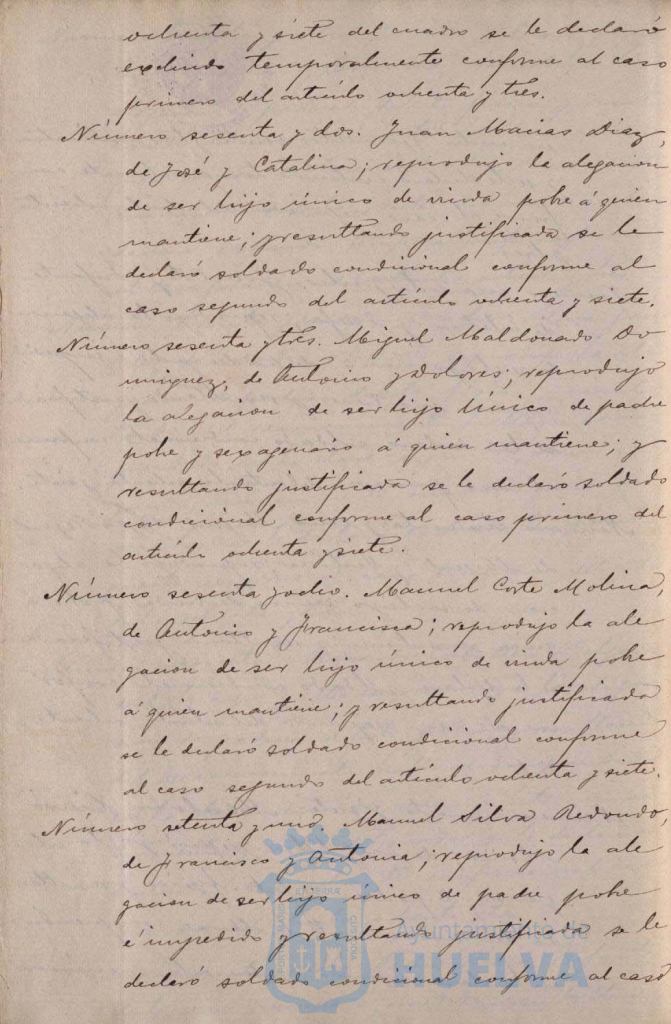 ochenta y siete del cuadro se le declaró
excluido temporalmente conforme al caso
primero del artículo ochenta y tres.
Número sesenta y dos. Juan Macias Diaz,
de José y Catalina; reprodujo la alegacion
de ser hijo único de viuda pobre á quien
mantiene; y resultando justificada se le
declaró soldado condicional conforme al
caso segundo del artículo ochenta y siete.
Número sesenta y tres. Miguel Maldonado Do
minguez, de Antonio y Dolores; reprodujo
la alegacion de ser hijo único de padre
pobre y sexagenario á quien mantiene; y
resultando justificada se le declaró soldado
condicional conforme al caso primero del
artículo ochenta y siete.
Número sesenta y ocho. Manuel Corte Molina,
de Antonio y Francisca; reprodujo la ale
gacion de ser hijo único de viuda pobre
á quien mantiene; y resultando justificada
se le declaró soldado condicional conforme
al caso segundo del artículo ochenta y siete.
Número setenta y uno. Manuel Silva Redondo,
de Francisco y Antonia; reprodujo la ale
gacion de ser hijo único de padre pobre
é impedido y resultando justificada se le
declaró soldado condicional conforme al caso
Ayuntamiento de
HUELVA